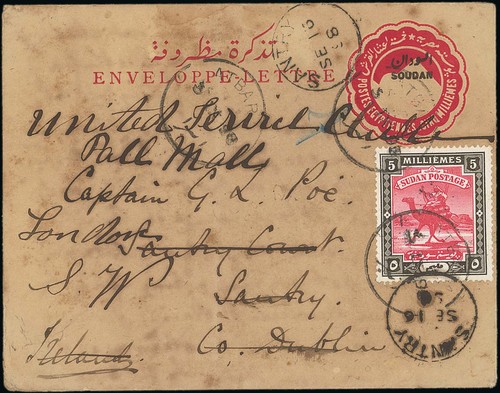 تذكرة مظروفة
ENVELOPPE-LETTRE
السودان
SOUDAN
POSTES EGYPTIENNES
MILLIEMES
SANTRY
SE 16
98
United Service Club
Pall Mall
Captain G. L. Poë.
London
Santry Court.
S. W
Santry.
Co. Dublin
Ireland.
5 MILLIEMES 5
SUDAN POSTAGE
SANTRY
SE 16
98